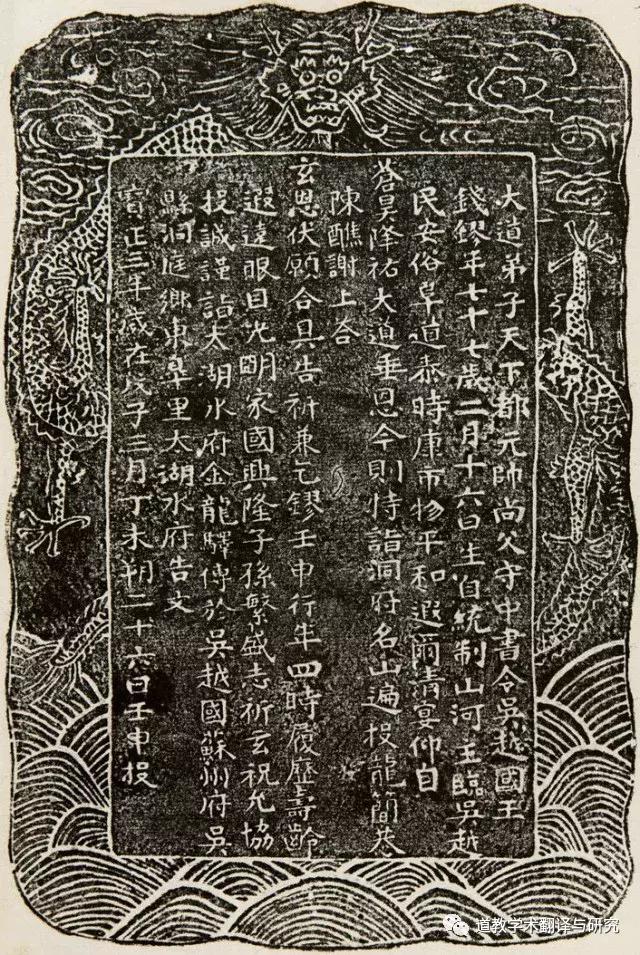 大道弟子天下都元帥尚父守中書令吳越國王
錢鏐年七十七歲二月十六日生自統制山河主臨吳越
民安俗阜道泰時康市物平和遐爾清宴仰自
蒼昊降祐大道垂恩今則特詣洞府名山遍投龍簡恭
陳醮謝上荅
玄恩伏願合具告祈兼乞鏐壬申行年四時履歷壽齡
遐遠眼目光明家國興隆子孫繁盛志祈玄祝允協
投誠謹詣太湖水府金龍驛傳於吳越國蘇州府吳
縣洞庭鄉東皋里太湖水府告文
寶正三年歲在戊子三月丁未朔二十六日壬申投
道教学术翻译与研究